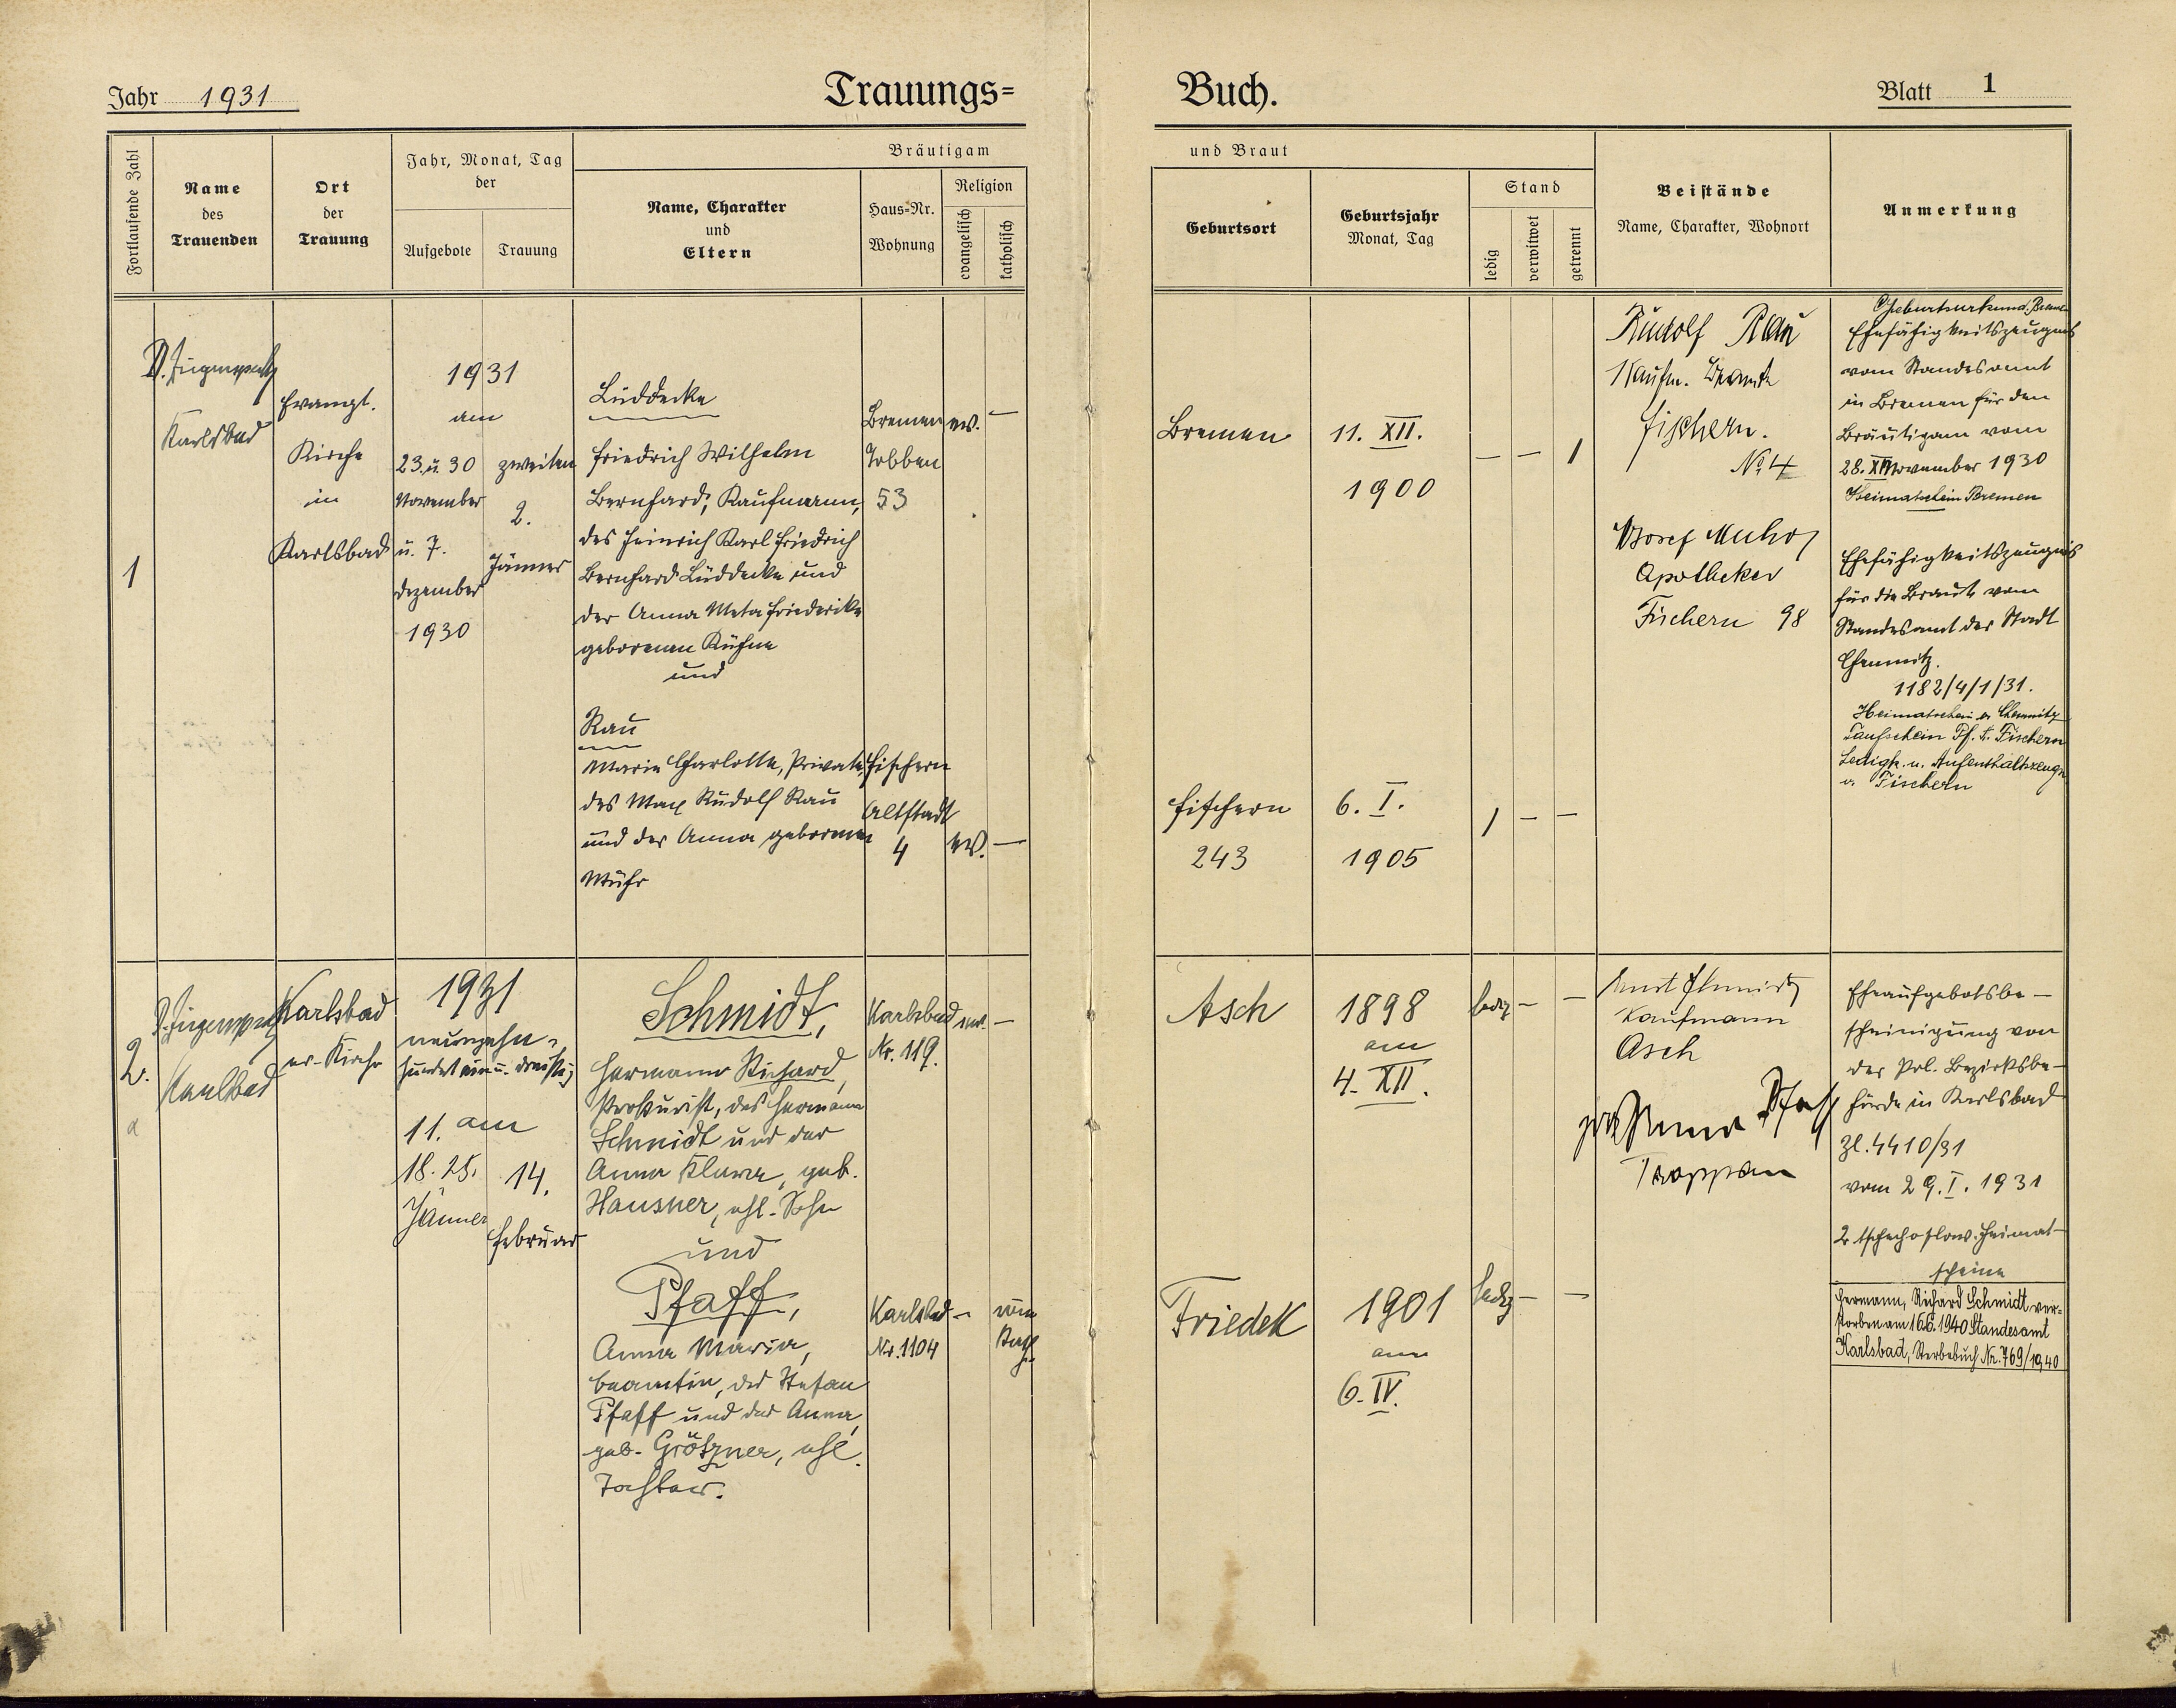 Jahr 1931
Trauungs=
Buch.
Blatt 1
Fortlaufende Zahl
Name
des
Trauenden
Ort
der
Trauung
Jahr, Monat, Tag
der
Aufgebote
Trauung
Bräutigam
Name, Charakter
und
Eltern
Haus=Nr.
Wohnung
Religion
evangelisch
katholisch
und Braut
Geburtsort
Geburtsjahr
Monat, Tag
Stand
ledig
verwitwet
getrennt
Beistände
Name, Charakter, Wohnort
Anmerkung
1
Karlsbad
Evangl.
Kirche
in
Karlsbad
1931
am
23. u. 30
November
u. 7.
Dezember
1930
zweiten
2.
Jänner
Lüddecke
Friedrich Wilhelm
Bernhard, Kaufmann,
des Heinrich Karl Friedrich
Bernhard Lüddecke und
der Anna Meta Friederike
geborenen Kühne
und
Rau
Marie Charlotte, Private,
des Max Rudolf Rau
und der Anna geborenen
Bremen
53
ev. —
Fischern
Altstadt
4
ev. —
Bremen
11. XII.
1900
— — 1
Fischern
243
6. I.
1905
1 — —
Rudolf Rau
Kaufm. Beamte
Fischern.
No 4
Josef
Apotheker
Fischern 98
Ehefähigkeitszeugnis
vom Standesamt
in Bremen für den
Bräutigam vom
28. November 1930
Heimatschein Bremen
Ehefähigkeitszeugnis
für die Braut vom
Standesamt der Stadt
Chemnitz.
1182/4/1/31.
Heimatschein v. Chemnitz
Taufschein Pf. A. Fischern
Ledigk. u. Aufenthaltszeugn
v. Fischern
2.
Karlsbad
Karlsbad
ev. Kirche
1931
neunzehn=
hundert ein u. dreißig
11. am
18. 25.
Jänner
14.
Februar
Schmidt,
Hermann Richard,
Prokurist, des Hermann
Schmidt und der
Anna Klara, geb.
Hausner, ehl. Sohn
und
Pfaff,
Anna Maria,
Beamtin, des Stefan
Pfaff und der Anna,
geb. Grötzner, ehl.
Tochter.
Karlsbad
Nr. 119.
ev. —
Karlsbad
Nr. 1104
—
röm
kath
Asch
1898
am
4. XII.
ledig — —
Friedek
1901
am
6. IV.
ledig — —
Kaufmann
Asch
Pfaff
Troppau
Eheaufgebotsbe-
scheinigung von
der Pol. Bezirksbe-
hörde in Karlsbad
Zl. 4410/31
vom 29. I. 1931
2 tschechoslow. Heimat-
scheine
Hermann, Richard Schmidt ver-
storben am 16.6.1940 Standesamt
Karlsbad, Sterbebuch Nr. 769/1940